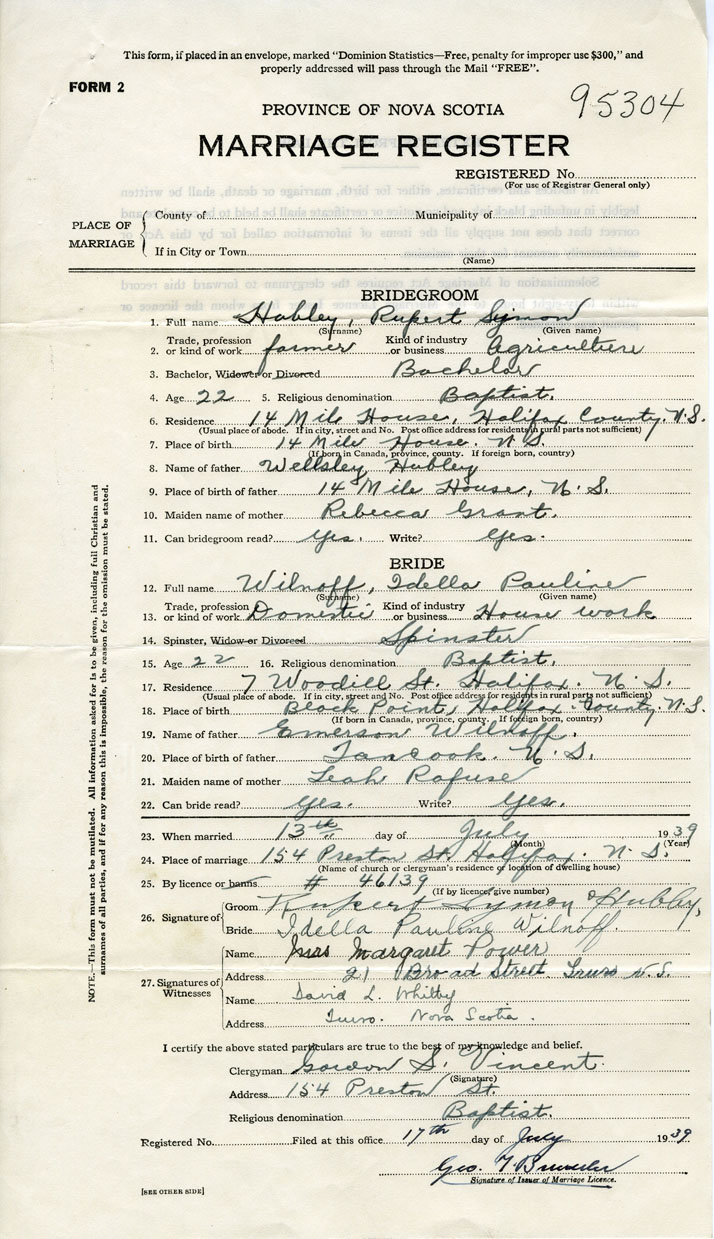 This form, if placed in an envelope, marked "Dominion Statistics—Free, penalty for improper use $300," and
properly addressed will pass through the Mail "FREE".
FORM 2
95304
PROVINCE OF NOVA SCOTIA
MARRIAGE REGISTER
REGISTERED No.
(For use of Registrar General only)
PLACE OF MARRIAGE
County of Municipality of
If in City or Town
(Name)
BRIDEGROOM
1. Full name Hubley, Rupert Symon
(Surname) (Given name)
2. Trade, profession or kind of work farmer Kind of industry or business Agriculture
3. Bachelor, Widower or Divorced Bachelor
4. Age 22 5. Religious denomination Baptist.
6. Residence 14 Mile House, Halifax County, N.S.
(Usual place of abode. If in city, street and No. Post office address for residents in rural parts not sufficient)
7. Place of birth 14 Mile House. N.S.
(If born in Canada, province, county. If foreign born, country)
8. Name of father Wellsley Hubley
9. Place of birth of father 14 Mile House, N.S.
10. Maiden name of mother Rebecca Grant.
11. Can bridegroom read? Yes. Write? Yes.
BRIDE
12. Full name Wilnoff, Idella Pauline
(Surname) (Given name)
13. Trade, profession or kind of work Domestic Kind of industry or business House work
14. Spinster, Widow or Divorced Spinster
15. Age 22 16. Religious denomination Baptist.
17. Residence 7 Woodill St. Halifax. N.S.
(Usual place of abode. If in city, street and No. Post office address for residents in rural parts not sufficient)
18. Place of birth Black Point, Halifax County, N.S.
(If born in Canada, province, county. If foreign born, country)
19. Name of father Emerson Wilnoff.
20. Place of birth of father Tancook. N.S.
21. Maiden name of mother Leah Rafuse
22. Can bride read? Yes. Write? Yes.
23. When married 13th day of July 1939
(Month) (Year)
24. Place of marriage 154 Preston St. Halifax. N.S.
(Name of church or clergyman's residence or location of dwelling house)
25. By licence or banns # 46139
(If by licence, give number)
26. Signature of
Groom Rupert Symon Hubley,
Bride Idella Pauline Wilnoff.
27. Signatures of Witnesses
Name Mrs Margaret Power
Address 21 Broad Street Truro N.S.
Name David L. Whitby
Address Truro. Nova Scotia.
I certify the above stated particulars are true to the best of my knowledge and belief.
Clergyman Gordon S. Vincent.
(Signature)
Address 154 Preston St.
Religious denomination Baptist.
Registered No. Filed at this office 17th day of July 1939
Geo.
Signature of Issuer of Marriage Licence.
[SEE OTHER SIDE]
NOTE.—This form must not be mutilated. All information asked for is to be given, including full Christian and
surnames of all parties, and if for any reason this is impossible, the reason for the omission must be stated.